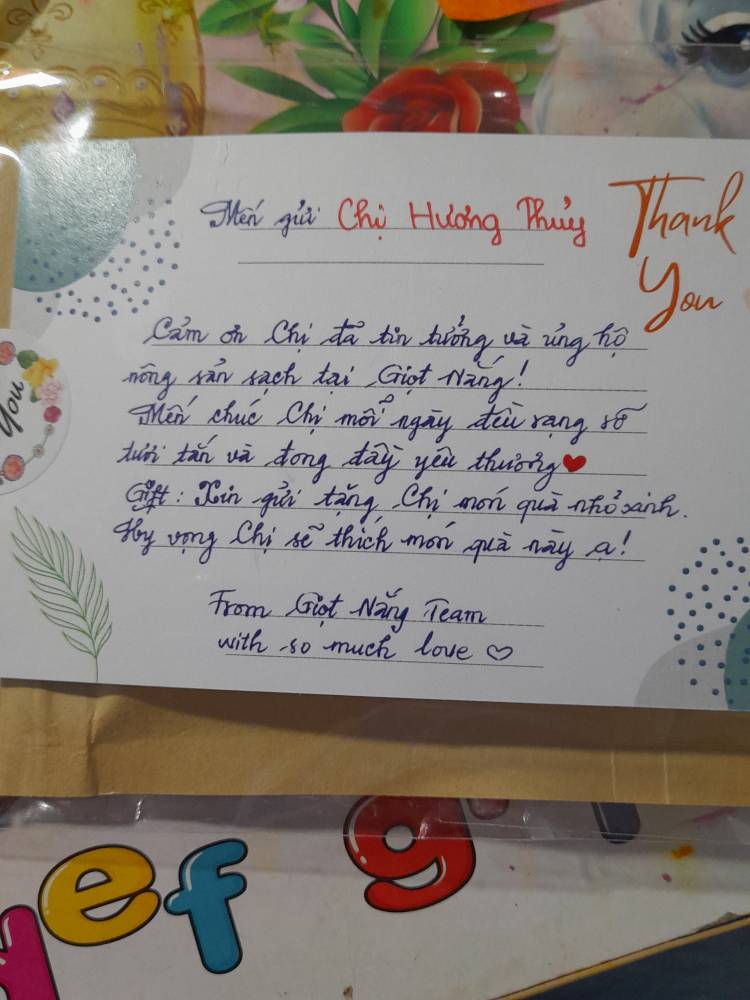 Mến gửi Chị Hương Thủy
Thank
You
Cảm ơn Chị đã tin tưởng và ủng hộ
nông sản sạch tại Giọt Nắng!
You
Mến chúc Chị mỗi ngày đều rạng rỡ
tươi tắn và đong đầy yêu thương
Gift: Xin gửi tặng Chị món quà nhỏ xinh.
Hy vọng Chị sẽ thích món quà này ạ!
From Giọt Nắng Team
with so much love
e f g